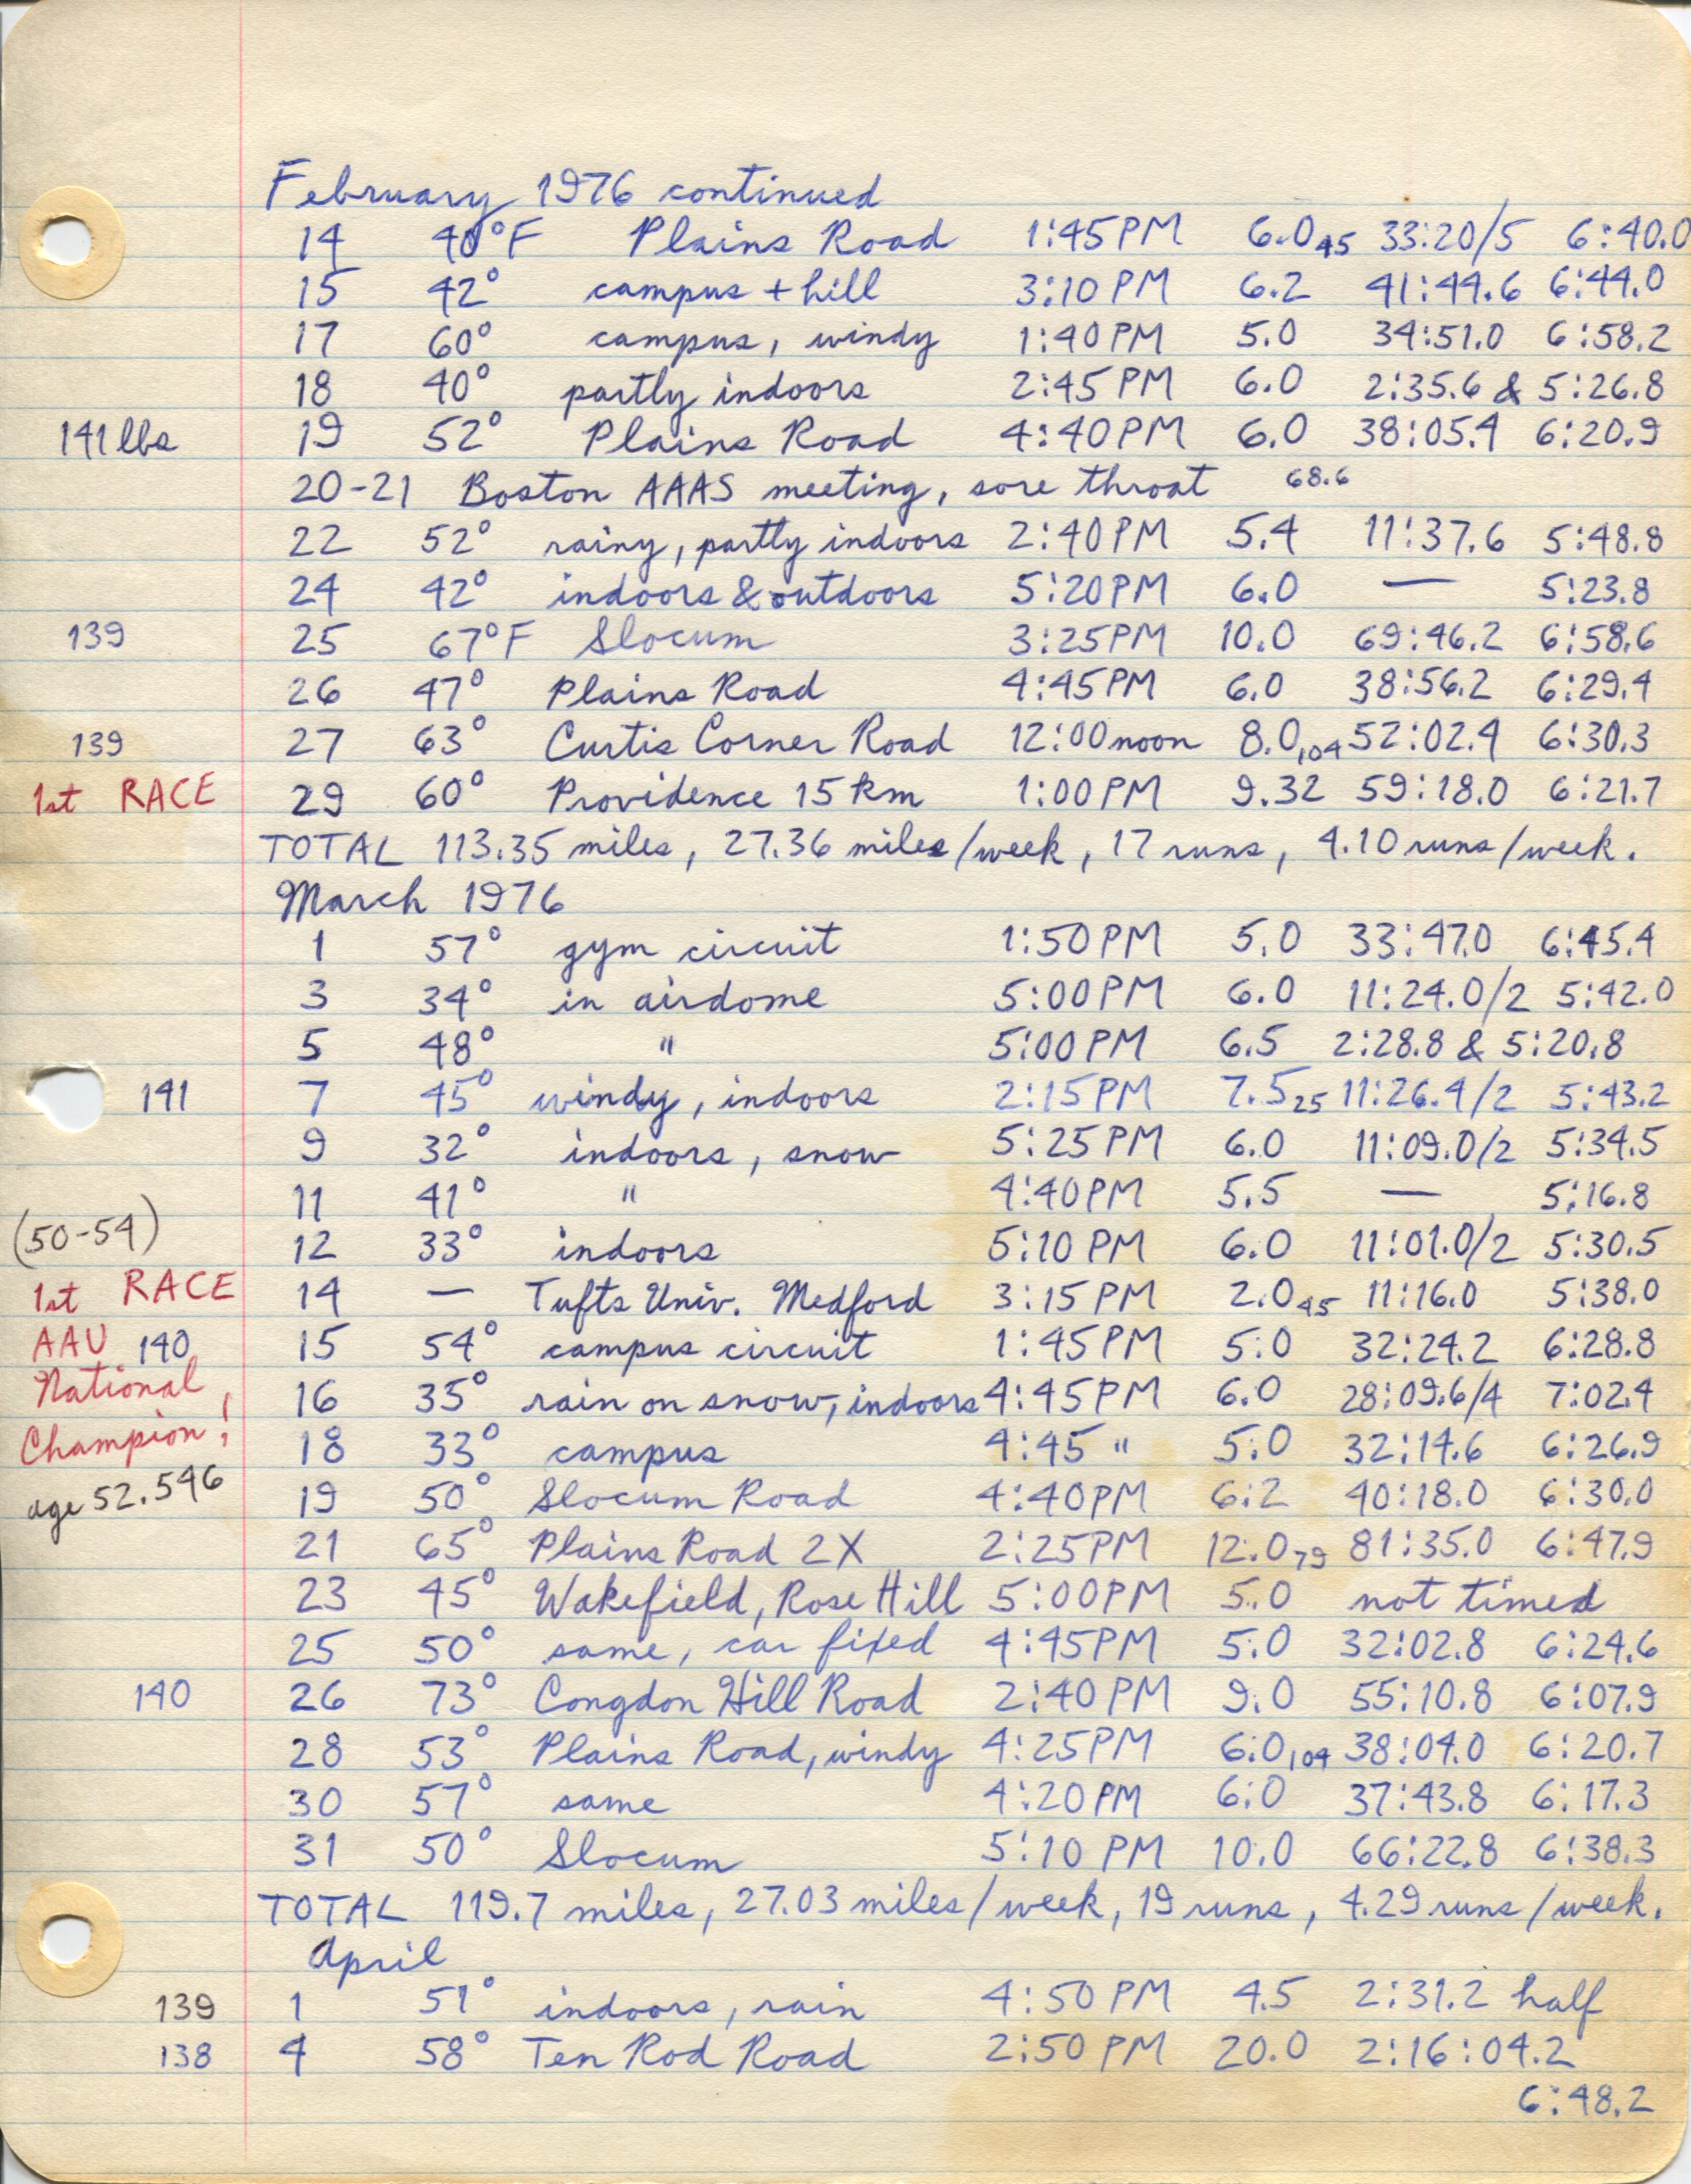 February 1976 continued
14 40°F Plains Road 1:45PM 6.0 45 33:20/5 6:40.0
15 42° campus + hill 3:10PM 6.2 41:44.6 6:44.0
17 60° campus, windy 1:40PM 5.0 34:51.0 6:58.2
18 40° partly indoors 2:45PM 6.0 2:35.6 & 5:26.8
141 lbs 19 52° Plains Road 4:40PM 6.0 38:05.4 6:20.9
20-21 Boston AAAS meeting, sore throat 68.6
22 52° rainy, partly indoors 2:40PM 5.4 11:37.6 5:48.8
24 42° indoors & outdoors 5:20PM 6.0 — 5:23.8
139 25 67°F Slocum 3:25PM 10.0 69:46.2 6:58.6
26 47° Plains Road 4:45PM 6.0 38:56.2 6:29.4
139 27 63° Curtis Corner Road 12:00 noon 8.0,104 52:02.4 6:30.3
1st RACE 29 60° Providence 15 km 1:00PM 9.32 59:18.0 6:21.7
TOTAL 113.35 miles, 27.36 miles/week, 17 runs, 4.10 runs/week.
March 1976
1 57° gym circuit 1:50PM 5.0 33:47.0 6:45.4
3 34° in airdome 5:00PM 6.0 11:24.0/2 5:42.0
5 48° " 5:00PM 6.5 2:28.8 & 5:20.8
141 7 45° windy, indoors 2:15PM 7.5 25 11:26.4/2 5:43.2
9 32° indoors, snow 5:25PM 6.0 11:09.0/2 5:34.5
11 41° " 4:40PM 5.5 — 5:16.8
(50-54) 12 33° indoors 5:10PM 6.0 11:01.0/2 5:30.5
1st RACE 14 — Tufts Univ. Medford 3:15PM 2.0 45 11:16.0 5:38.0
AAU 140 15 54° campus circuit 1:45PM 5.0 32:24.2 6:28.8
National 16 35° rain on snow, indoors 4:45PM 6.0 28:09.6/4 7:02.4
Champion! 18 33° campus 4:45 " 5.0 32:14.6 6:26.9
age 52.546 19 50° Slocum Road 4:40PM 6.2 40:18.0 6:30.0
21 65° Plains Road 2X 2:25PM 12.0 79 81:35.0 6:47.9
23 45° Wakefield, Rose Hill 5:00PM 5.0 not timed
25 50° same, car fixed 4:45PM 5.0 32:02.8 6:24.6
140 26 73° Congdon Hill Road 2:40PM 9.0 55:10.8 6:07.9
28 53° Plains Road, windy 4:25PM 6.0,104 38:04.0 6:20.7
30 57° same 4:20PM 6.0 37:43.8 6:17.3
31 50° Slocum 5:10PM 10.0 66:22.8 6:38.3
TOTAL 119.7 miles, 27.03 miles/week, 19 runs, 4.29 runs/week.
April
139 1 51° indoors, rain 4:50PM 4.5 2:31.2 half
138 4 58° Ten Rod Road 2:50PM 20.0 2:16:04.2
6:48.2